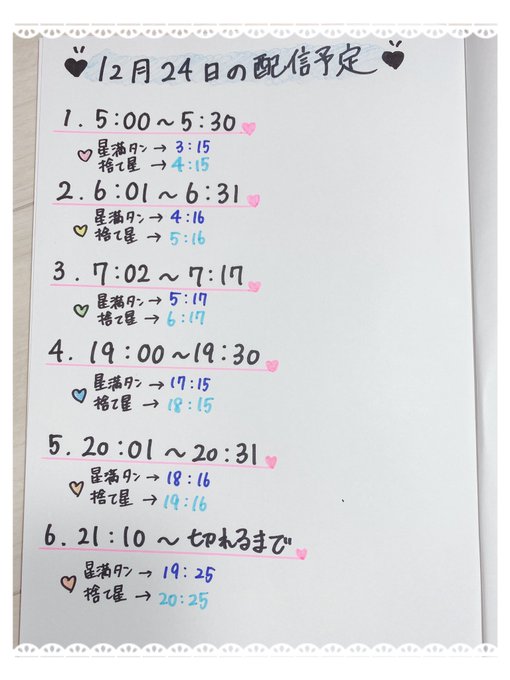 12月24日の配信予定
1. 5:00〜5:30
星満タン→3:15
捨て星→4:15
2. 6:01〜6:31
星満タン→4:16
捨て星→5:16
3. 7:02〜7:17
星満タン→5:17
捨て星→6:17
4. 19:00〜19:30
星満タン→17:15
捨て星→18:15
5. 20:01〜20:31
星満タン→18:16
捨て星→19:16
6. 21:10〜切れるまで
星満タン→19:25
捨て星→20:25